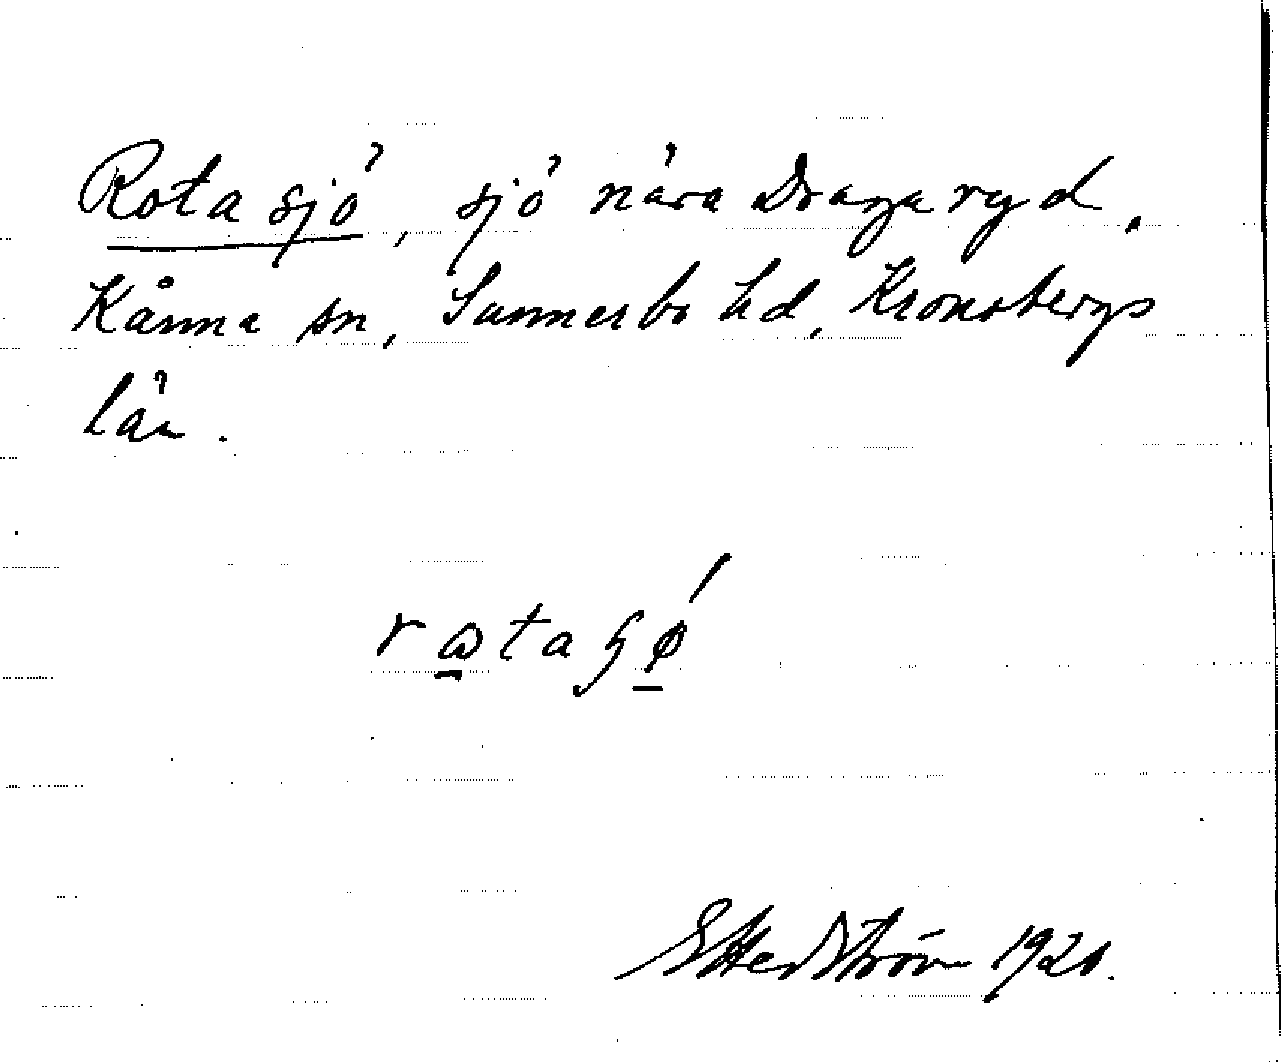 Rota sjö, sjö nära Dragaryd,
Kånna sn, Sunnerbo hd, Kronobergs
län.
rωtaɧǿ
1920.